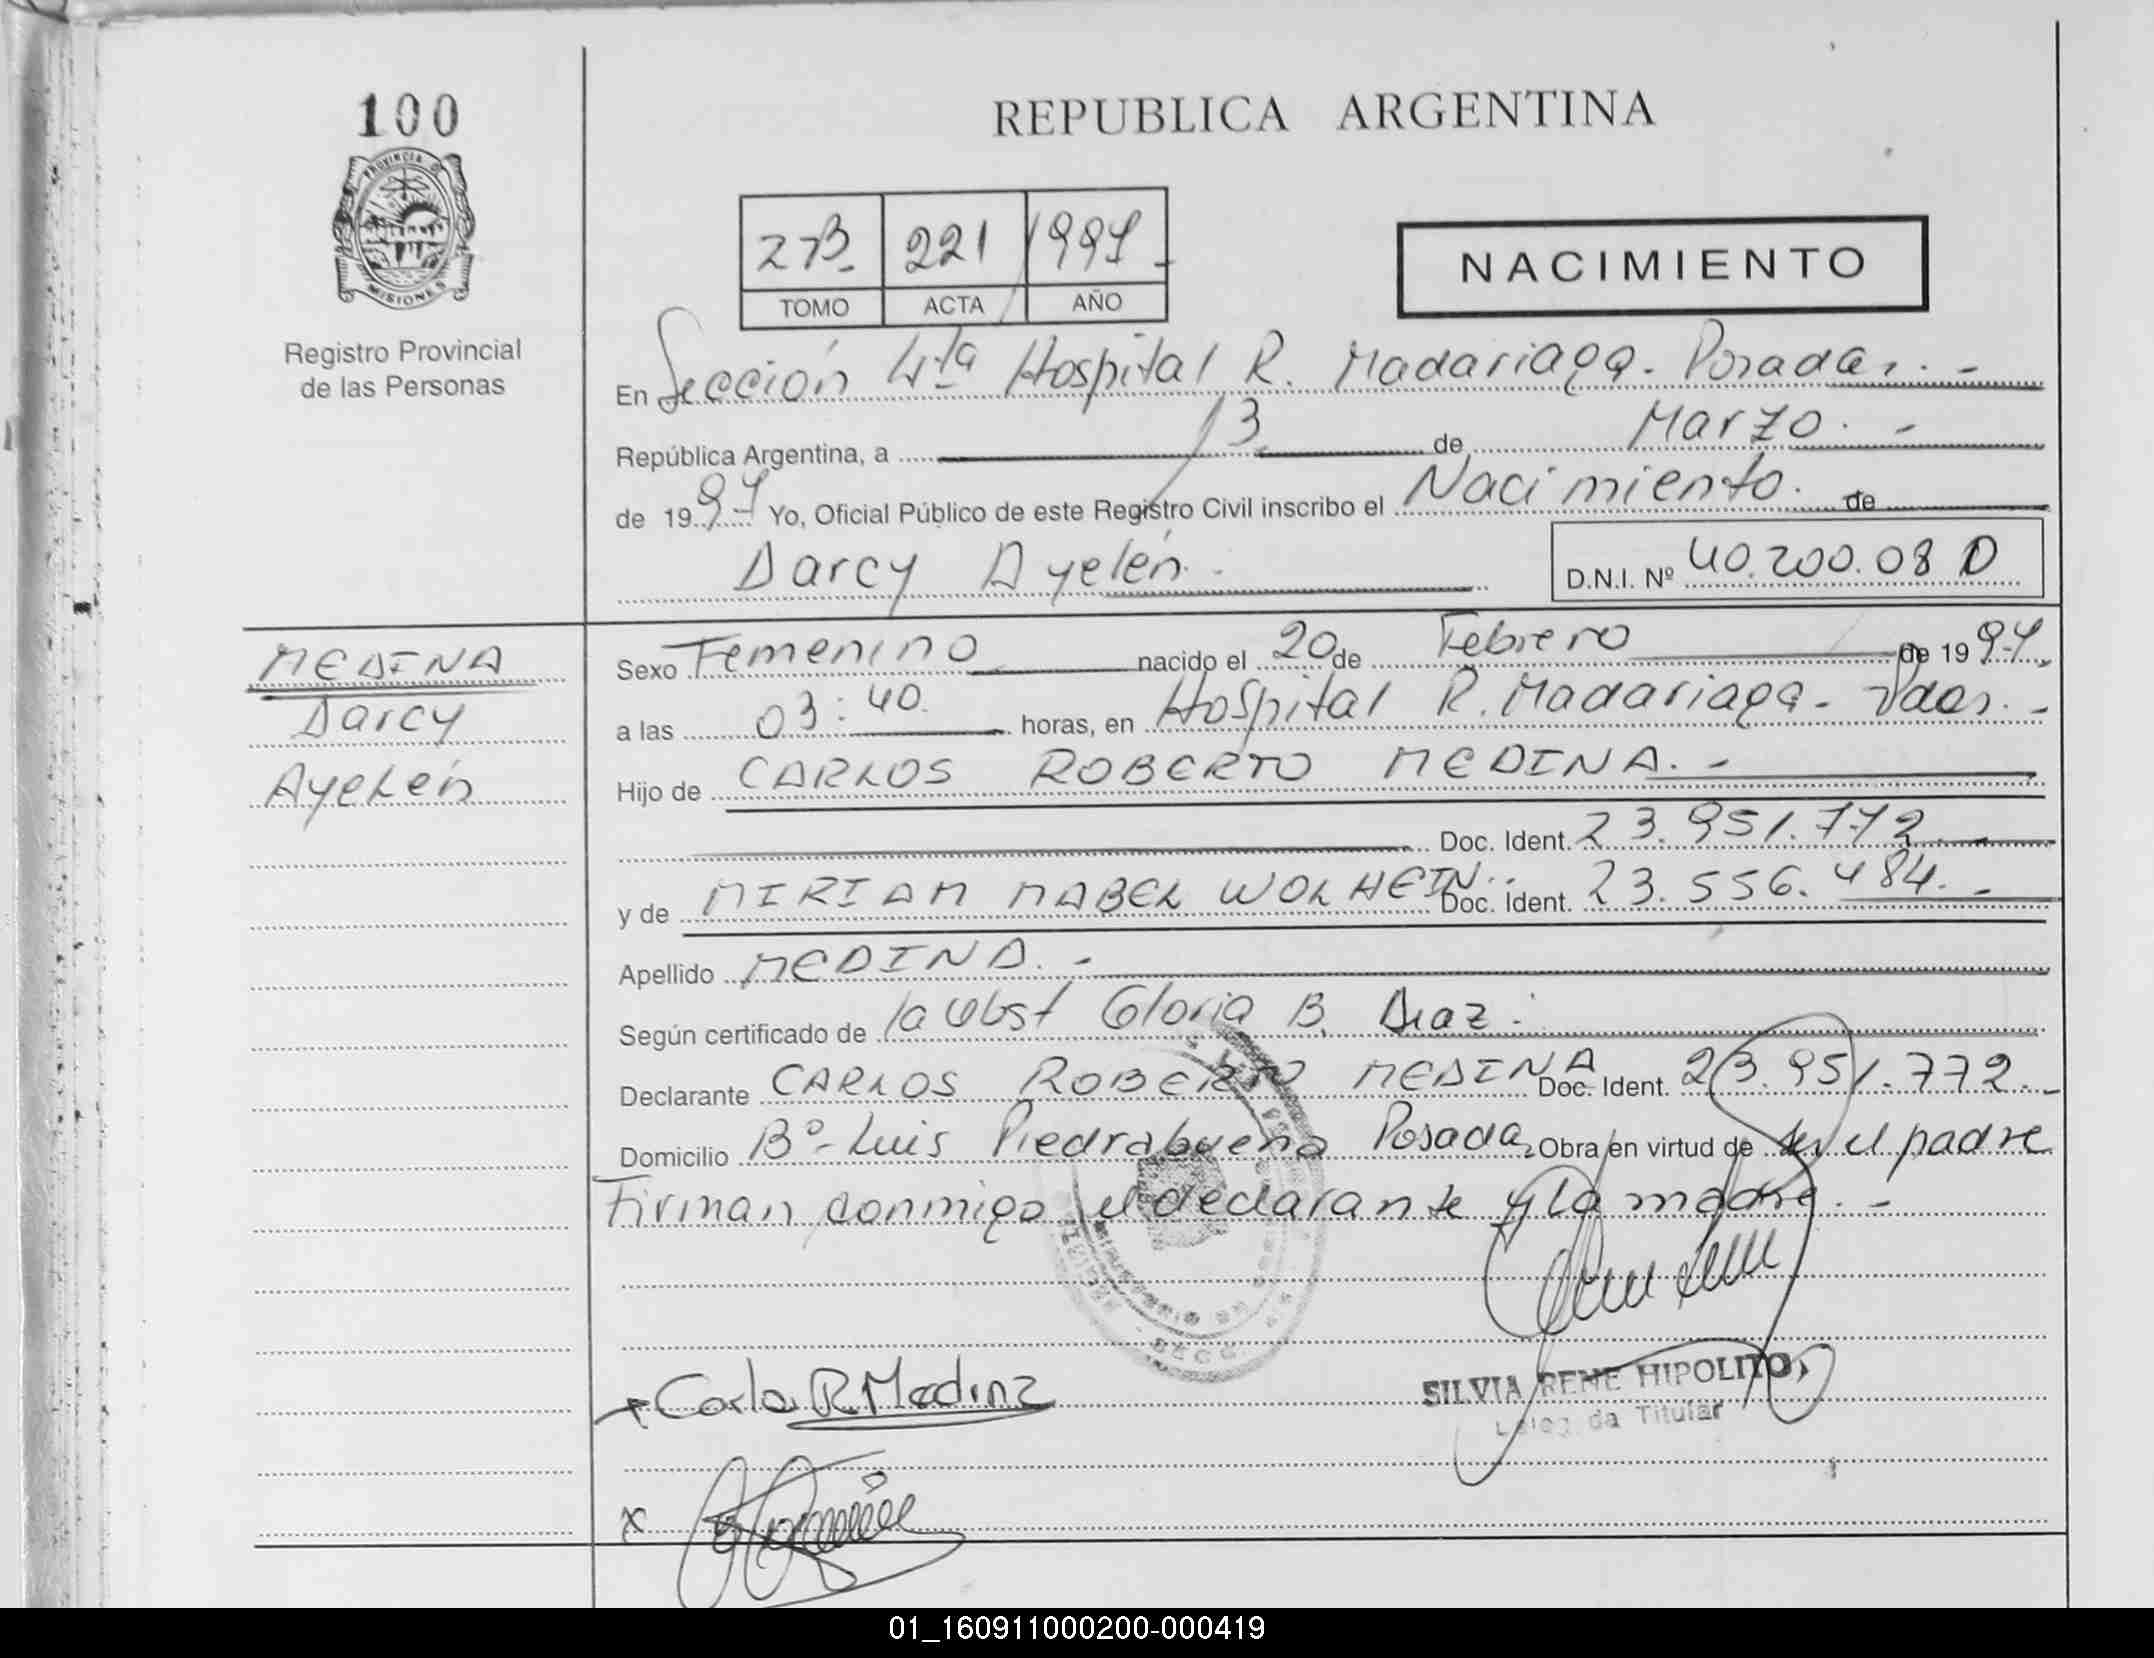 100
PROVINCIA DE
MISIONES
Registro Provincial
de las Personas
REPUBLICA ARGENTINA
221 1997
TOMO ACTA AÑO
NACIMIENTO
En Sección 4ta Hospital R. Madariaga. Posadas. -
República Argentina, a 13 de Marzo. -
de 1997 Yo, Oficial Público de este Registro Civil inscribo el Nacimiento. de
Darcy Ayelén. D.N.I. Nº 40.200.080
MEDINA
Darcy
Ayelén
Sexo Femenino nacido el 20 de Febrero de 1997.
a las 03:40. horas, en Hospital R. Madariaga. Pdas. -
Hijo de CARLOS ROBERTO MEDINA. -
Doc. Ident. 23.951.772
y de MIRIAM MABEL WOLHEIN.. Doc. Ident. 23.556.484. -
Apellido MEDINA. -
Según certificado de la Obst Gloria B. Diaz.
Declarante CARLOS ROBERTO MEDINA Doc. Ident. 23.951.772. -
Domicilio Bº- Luis Piedrabuena Posadas Obra en virtud de ser el padre
Firman conmigo el declarante y la madre. -
Carlos R Medina
SILVIA RENE HIPOLITO
Titular
x
01_160911000200-000419